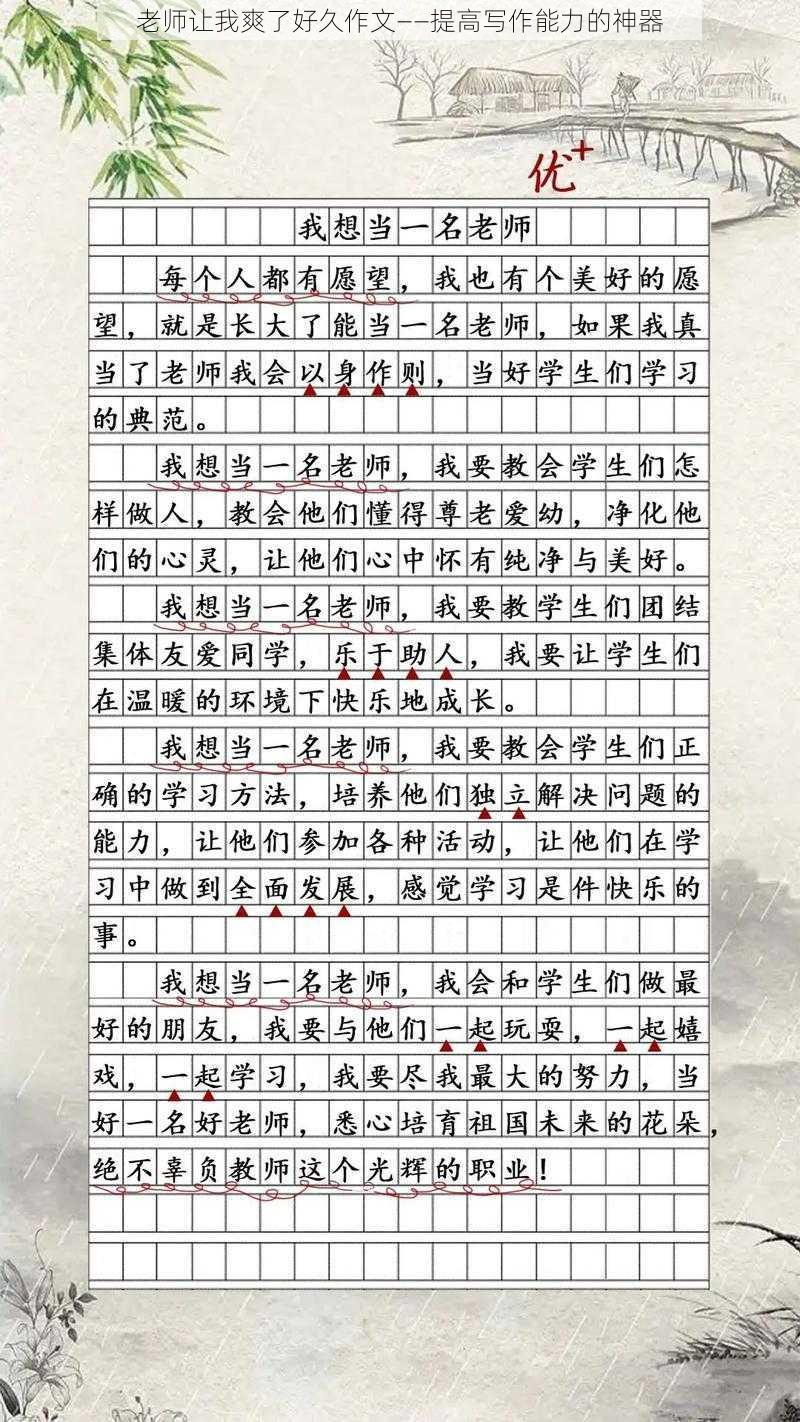 老师让我爽了好久作文——提高写作能力的神器
优+
我想当一名老师
每个人都有愿望，我也有个美好的愿
望，就是长大了能当一名老师，如果我真
当了老师我会以身作则，当好学生们学习
的典范。
我想当一名老师，我要教会学生们怎
样做人，教会他们懂得尊老爱幼，净化他
们的心灵，让他们心中怀有纯净与美好。
我想当一名老师，我要教学生们团结
集体友爱同学，乐于助人，我要让学生们
在温暖的环境下快乐地成长。
我想当一名老师，我要教会学生们正
确的学习方法，培养他们独立解决问题的
能力，让他们参加各种活动，让他们在学
习中做到全面发展，感觉学习是件快乐的
事。
我想当一名老师，我会和学生们做最
好的朋友，我要与他们一起玩耍，一起嬉
戏，一起学习，我要尽我最大的努力，当
好一名好老师，悉心培育祖国未来的花朵，
绝不辜负教师这个光辉的职业！